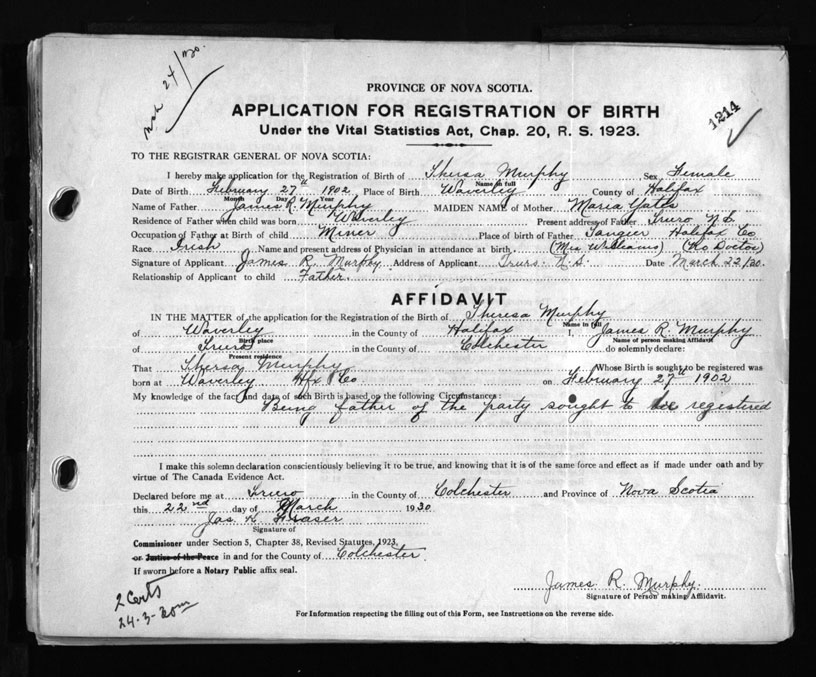 Mch 24/30.
1214
PROVINCE OF NOVA SCOTIA.
APPLICATION FOR REGISTRATION OF BIRTH
Under the Vital Statistics Act, Chap. 20, R. S. 1923.
TO THE REGISTRAR GENERAL OF NOVA SCOTIA:
I hereby make application for the Registration of Birth of Theresa Murphy Sex Female
Name in full
Date of Birth February 27th 1902 Place of Birth Waverley County of Halifax
Month Day Year
Name of Father James R. Murphy MAIDEN NAME of Mother Maria Yates
Residence of Father when child was born Waverley Present address of Father Truro N S
Occupation of Father at Birth of child Miner Place of birth of Father Tangier Halifax Co
Race Irish Name and present address of Physician in attendance at birth (Mrs Williams) (No Doctor)
Signature of Applicant James R. Murphy Address of Applicant Truro. N.S. Date March 22/30.
Relationship of Applicant to child Father.
AFFIDAVIT
IN THE MATTER of the application for the Registration of the Birth of Theresa Murphy
Name in full
of Waverley in the County of Halifax I, James R. Murphy
Birth place Name of person making Affidavit
of Truro in the County of Colchester do solemnly declare:
Present residence
That Theresa Murphy Whose Birth is sought to be registered was
born at Waverley Hfx Co on February 27th 1902
My knowledge of the fact and date of such Birth is based on the following Circumstances:
Being father of the party sought to be registered
I make this solemn declaration conscientiously believing it to be true, and knowing that it is of the same force and effect as if made under oath and by
virtue of The Canada Evidence Act.
Declared before me at Truro in the County of Colchester and Province of Nova Scotia
this 22nd day of March 1930
Jas. Fraser
Signature of
Commissioner under Section 5, Chapter 38, Revised Statutes, 1923.
or Justice of the Peace in and for the County of Colchester.
If sworn before a Notary Public affix seal.
James R. Murphy.
Signature of Person making Affidavit.
2 Certs
24-3-30
For Information respecting the filling out of this Form, see Instructions on the reverse side.